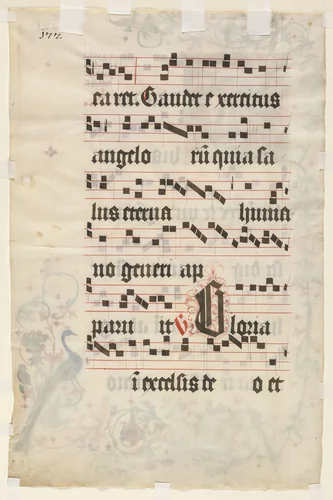 177.
ca ret. Gaudet e xercitus
angelo rū quia sa
lus eterna huma
no generi ap
paru it ℟ Gloria
ī excelsis de o et